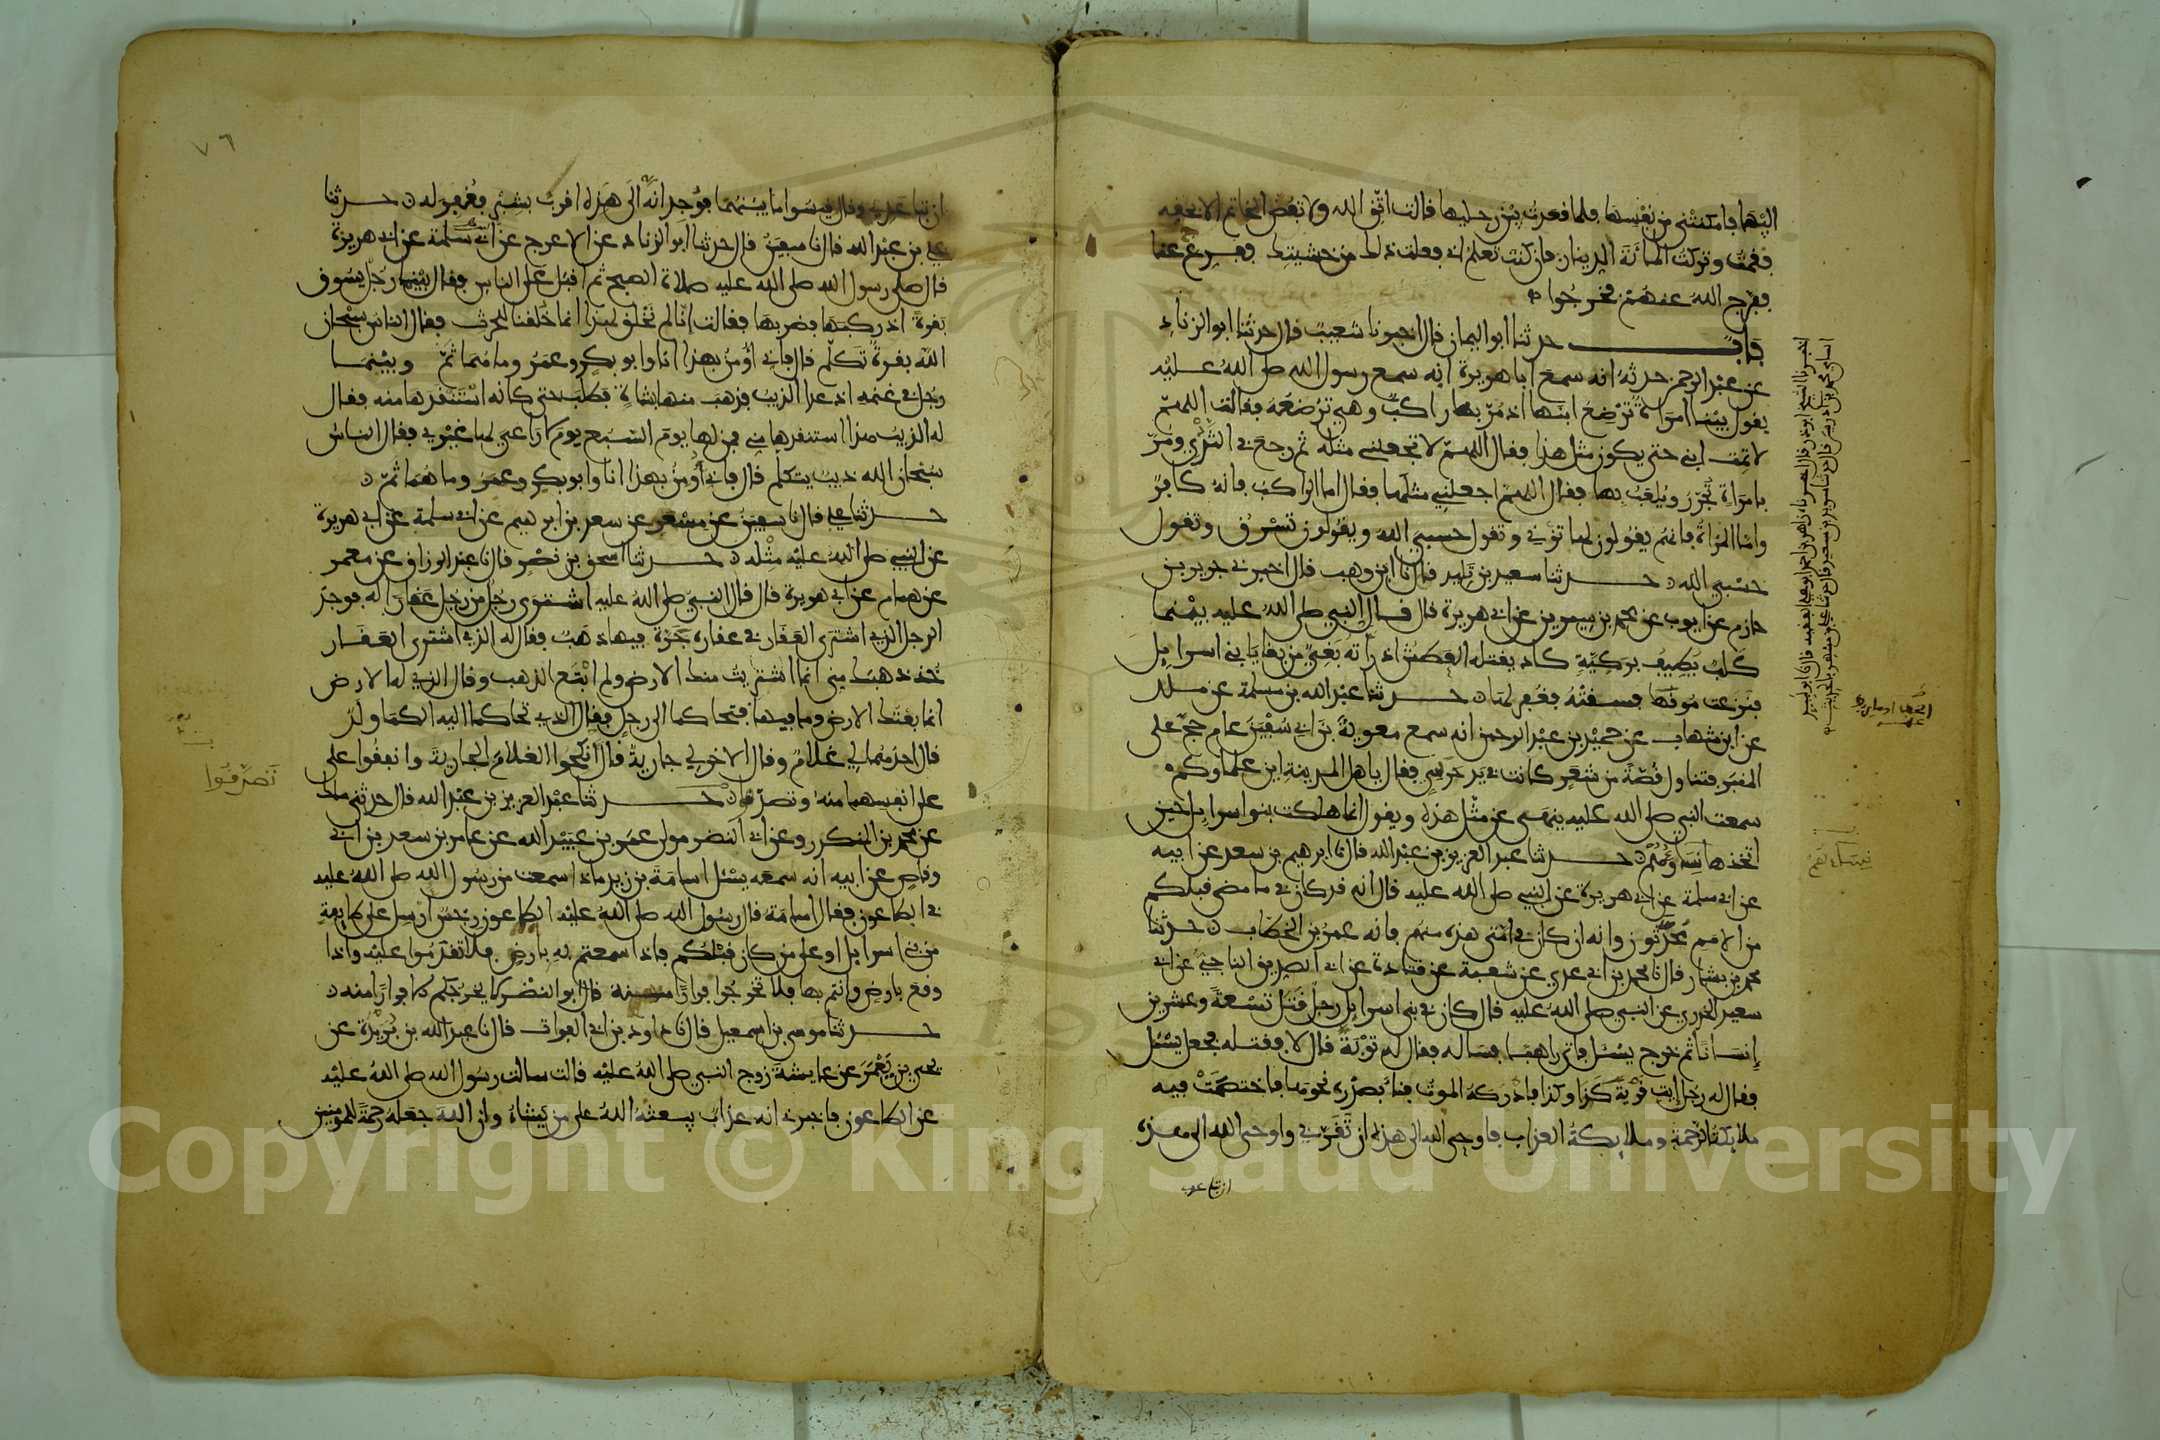 اليها فامكنتني من نفسها فلما قعدت بين رجليها قالت اتق الله ولا تفض الخاتم الا بحقه
فقمت وتركت المائة الدينار فان كنت تعلم اني فعلت ذلك من خشيتك ففرج عنا
ففرج الله عنهم فخرجوا
باب حدثنا ابو اليمان قال اخبرنا شعيب قال حدثنا ابو الزناد
عن عبد الرحمن حدثه انه سمع ابا هريرة انه سمع رسول الله صلى الله عليه
يقول بينا امراة ترضع ابنها اذ مر بها راكب وهي ترضعه فقالت اللهم
لا تمت ابني حتى يكون مثل هذا فقال اللهم لا تجعلني مثله ثم رجع في الثدي ومر
بامراة تجرر ويلعب بها فقال اللهم اجعلني مثلها فقال اما الراكب فانه كافر
واما المراة فانهم يقولون لها تزني وتقول حسبي الله ويقولون تسرق وتقول
حسبي الله حدثنا سعيد بن تليد قال نا ابن وهب قال اخبرني جرير بن
حازم عن ايوب عن محمد بن سيرين عن ابي هريرة قال قال النبي صلى الله عليه بينما
كلب يطيف بركية كاد يقتله العطش اذ راته بغي من بغايا بني اسرايل
فنزعت موقها فسقته فغفر لها حدثنا عبد الله بن مسلمة عن ملك
عن ابن شهاب عن حميد بن عبد الرحمن انه سمع معوية بن ابي سفين عام حج على
المنبر فتناول قصة من شعر كانت في يد حرسي فقال ياهل المدينة اين علماوكم
سمعت النبي صلى الله عليه ينهى عن مثل هذه ويقول انما هلكت بنوا اسرايل حين
اتخذها نساؤهم حدثنا عبد العزيز بن عبد الله قال نا ابرهيم بن سعد عن ابيه
عن ابي سلمة عن ابي هريرة عن النبي صلى الله عليه قال انه قد كان في ما مضى قبلكم
من الامم محدثون وانه ان كان في امتي هذه منهم فانه عمر بن الخطاب حدثنا
محمد بن بشار قال نا محمد بن ابي عدي عن شعبة عن قتادة عن ابي الصديق الناجي عن ابي
سعيد الخدري عن النبي صلى الله عليه قال كان في بني اسرايل رجل قتل تسعة وعشرين
إنسانا ثم خرج يسئل فاتى راهبا فساله فقال له توبة قال لا فقتله فجعل يسئل
فقال له رجل ايت قرية كذا وكذا فادركه الموت فناء بصدره نحوها فاختصمت فيه
ملايكة الرحمة وملايكة العذاب فاوحى الله الى هذه ان تقربي واوحى الله الى هذه
ان تباعدي
نساءهم
ان تباعدي وقال قيسوا ما بينهما فوجد انه الى هذه اقرب بشبر فغفر له حدثنا
علي بن عبد الله قال نا سفين قال حدثنا ابو الزناد عن الاعرج عن ابي سلمة عن ابي هريرة
قال صلى رسول الله صلى الله عليه صلاة الصبح ثم اقبل على الناس فقال بينما رجل يسوق
بقرة اذ ركبها فضربها فقالت انا لم نخلق لهذا انما خلقنا للحرث فقال الناس سبحان
الله بقرة تكلم قال فاني اؤمن بهذا انا وابو بكر وعمر وما هما ثم وبينما
رجل في غنمه اذ عدا الذيب فذهب منها بشاة فطلب حتى كانه استنقذها منه فقال
له الذيب هذا استنقذها مني فمن لها يوم السبع يوم لا راعي لها غيري فقال الناس
سبحان الله ذيب يتكلم قال فاني اؤمن بهذا انا وابو بكر وعمر وما هما ثم
حدثنا علي قال نا سفين عن مسعر عن سعد بن ابرهيم عن ابي سلمة عن ابي هريرة
عن النبي صلى الله عليه مثله حدثنا اسحق بن نصر قال نا عبد الرزاق عن معمر
عن همام عن ابي هريرة قال قال النبي صلى الله عليه اشترى رجل من رجل عقارا له فوجد
الرجل الذي اشترى العقار في عقاره جرة فيها ذهب فقال له الذي اشترى العقار
خذ ذهبك مني انما اشتريت منك الارض ولم ابتع الذهب وقال الذي له الارض
انما بعتك الارض وما فيها فتحاكما الى رجل فقال الذي تحاكما اليه الكما ولد
قال احدهما لي غلام وقال الاخر لي جارية قال انكحوا الغلام الجارية وانفقوا على
على انفسهما منه وتصدقا حدثنا عبد العزيز بن عبد الله قال حدثني ملك
عن محمد بن المنكدر وعن ابي النضر مولى عمر بن عبيد الله عن عامر بن سعد بن ابي
وقاص عن ابيه انه سمعه يسئل اسامة بن زيد ماذا سمعت من رسول الله صلى الله عليه
في الطاعون فقال اسامة قال رسول الله صلى الله عليه الطاعون رجس ارسل على طايفة
من بني اسرايل او على من كان قبلكم فاذا سمعتم به بارض فلا تقدموا عليه واذا
وقع بارض وانتم بها فلا تخرجوا فرارا منه قال ابو النضر لا يخرجكم الا فرارا منه
حدثنا موسى بن اسمعيل قال نا داود بن ابي الفرات قال نا عبد الله بن بريدة عن
يحيى بن يعمر عن عايشة زوج النبي صلى الله عليه قالت سالت رسول الله صلى الله عليه
عن الطاعون فاخبرني انه عذاب يبعثه الله على من يشاء وان الله جعله رحمة للمومنين
تصدقوا
٧٦
Copyright © King Saud University